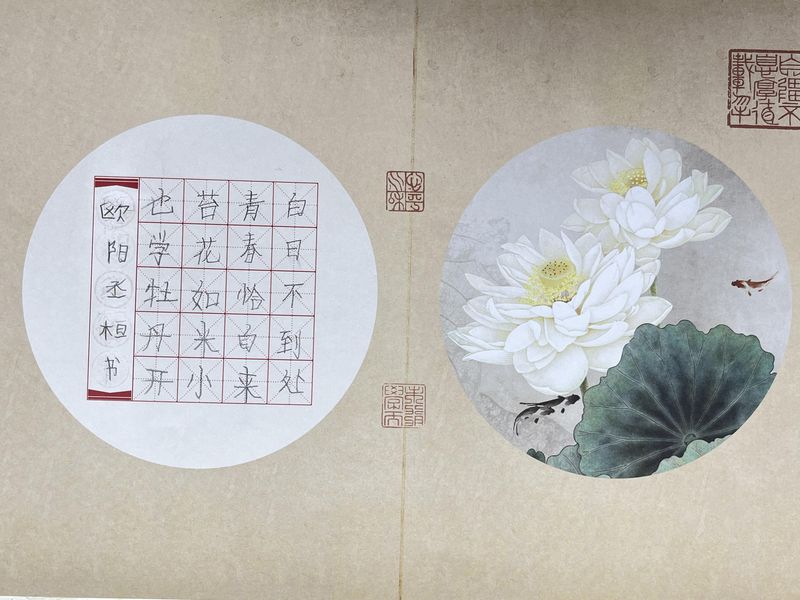 白日不到处
青春恰自来
苔花如米小
也学牡丹开
欧阳丞桓书